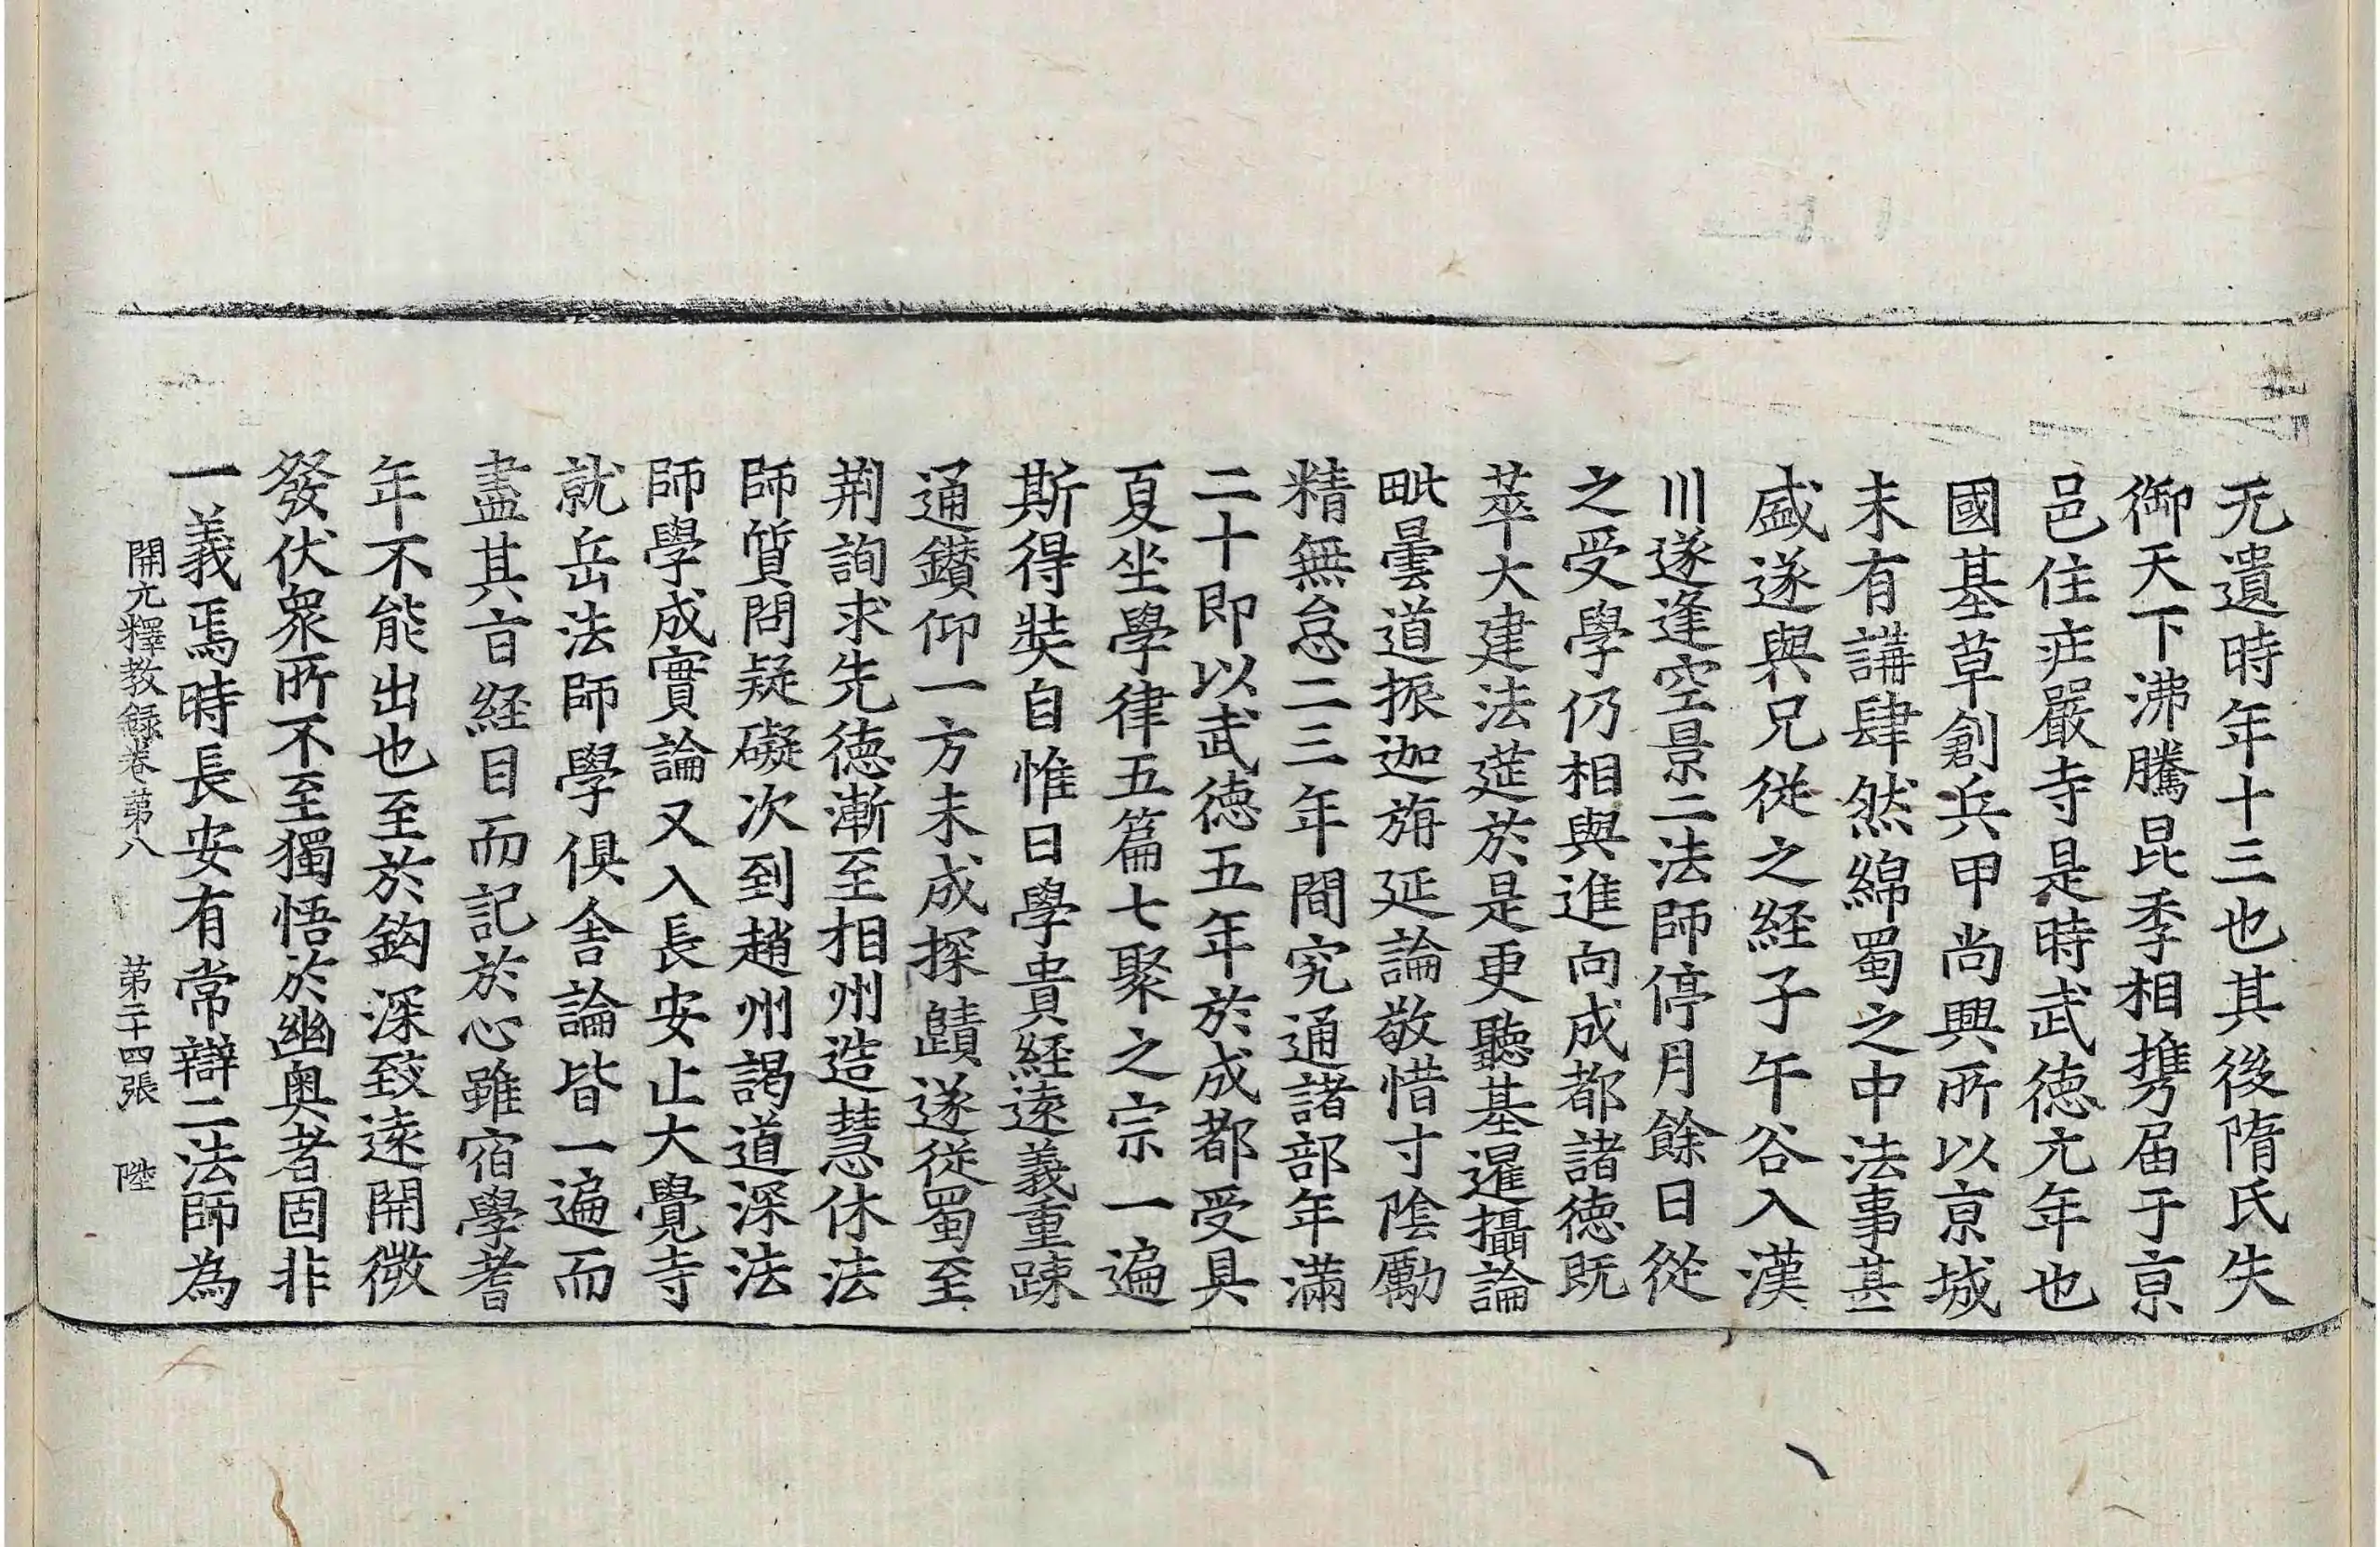 无遺時年十三也其後隋氏失
御天下沸騰昆季相攜届于京
邑住莊嚴寺是時武德元年也
國基草創兵甲尚興所以京城
未有講肆然綿蜀之中法事甚
盛遂與兄從之經子午谷入漢
川遂逢空景二法師停月餘日從
之受學仍相與進向成都諸德既
萃大建法莚於是更聽基暹攝論
毗曇道振迦旃延論敬惜寸陰勵
精無怠二三年間究通諸部年滿
二十即以武德五年於成都受具
夏坐學律五篇七聚之宗一遍
斯得奘自惟曰學貴経遠義重踈
通鑽仰一方未成探賾遂從蜀至
荆詢求先德漸至相州造慧休法
師質問疑礙次到趙州謁道深法
師學成實論又入長安止大覺寺
就岳法師學俱舍論皆一遍而
盡其旨経目而記於心雖宿學耆
年不能出也至於鈎深致遠開微
發伏衆所不至獨悟於幽奥者固非
一義焉時長安有常辯二法師為
開元釋教録卷苐八 第二十四張 陞